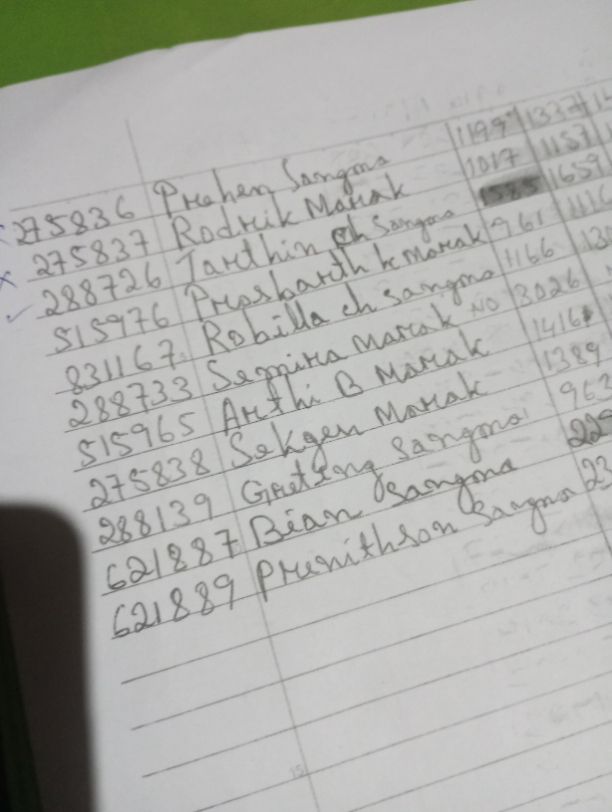 275836 Prehen Sangma 1199 1337
275837 Rodrik Marak 1017 1157
288726 Tarthin ch Sangma 1585 1659
515976 Prosbarth k Marak 961 1116
831167 Robilla ch Sangma 1166
288733 Semira Marak NO 3026
515965 Arthi B Marak 1416
275838 Sekgen Marak 1389
288139 Greting Sangma 963
621887 Bian Sangma
621889 Prenithson Sangma